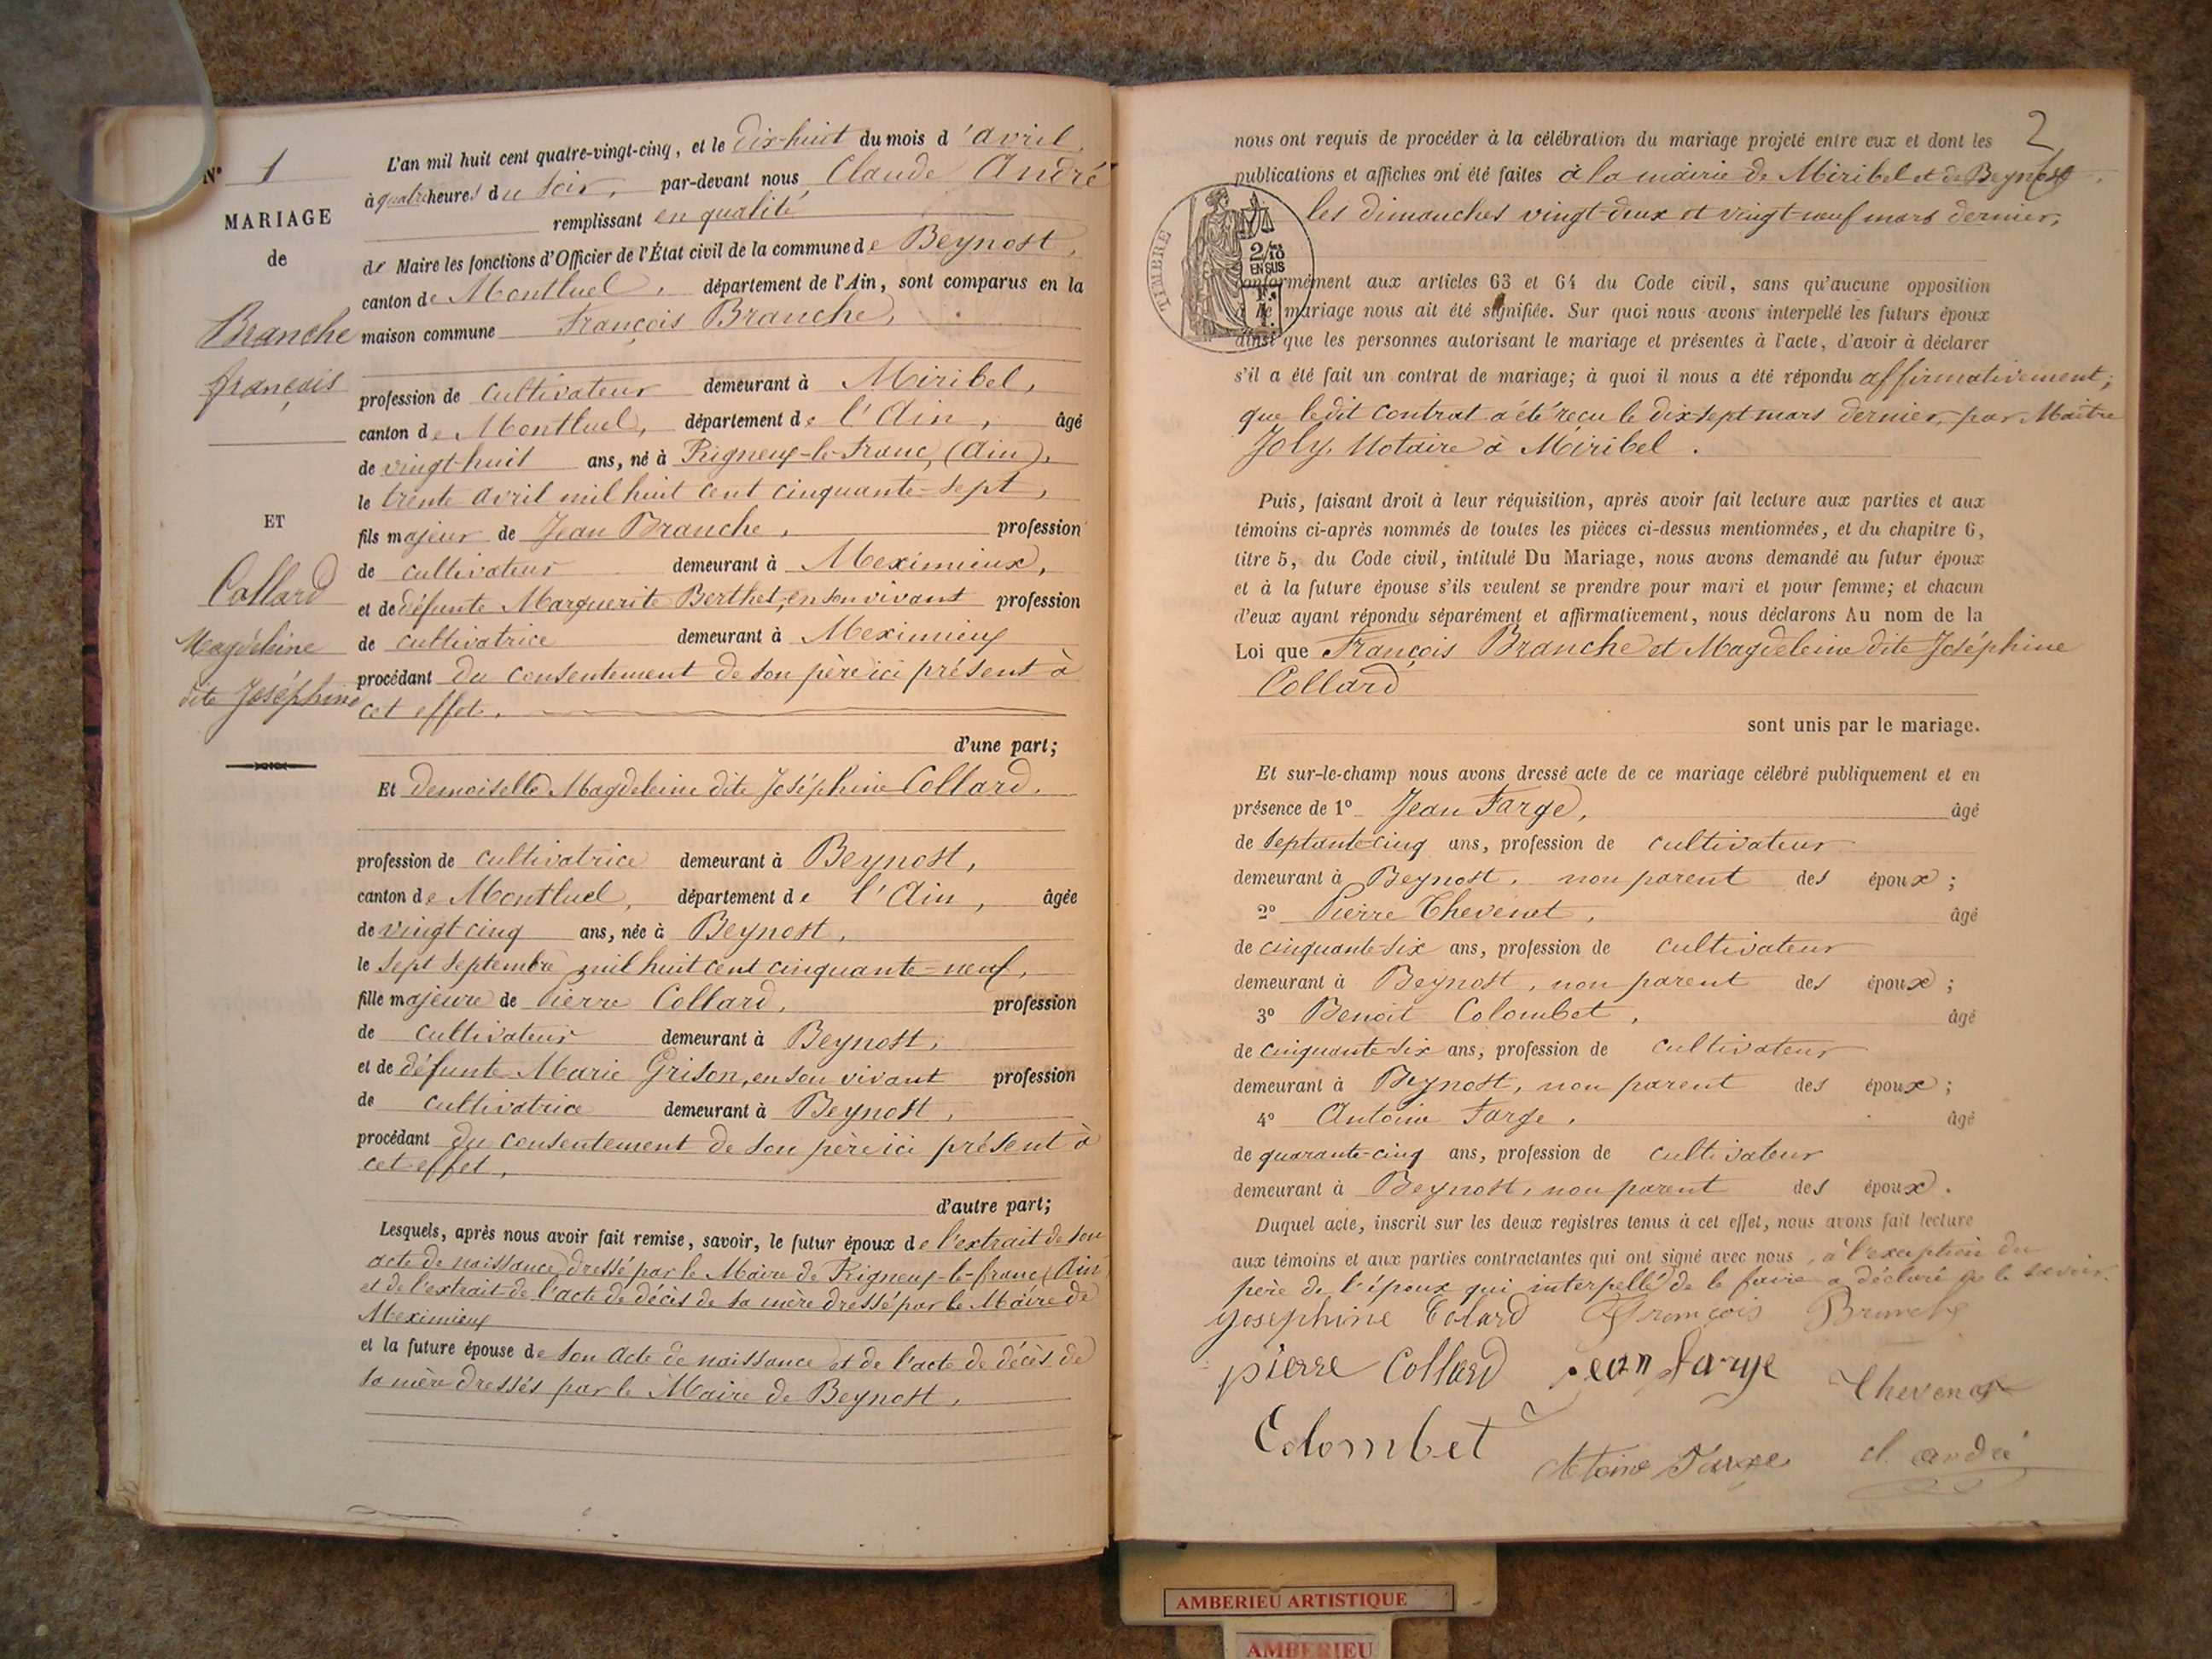 N° 1
MARIAGE
de
Branche
françois
ET
Collard
Magdeleine
dite Joséphine
L'an mil huit cent quatre-vingt-cinq, et le dix-huit du mois d'avril,
à quatre heures du soir, par-devant nous Claude André
remplissant en qualité
de Maire les fonctions d'Officier de l'État civil de la commune de Beynost,
canton de Montluel, département de l'Ain, sont comparus en la
maison commune François Branche,
profession de cultivateur demeurant à Miribel,
canton de Montluel, département de l'Ain, âgé
de vingt-huit ans, né à Rigneux-le-Franc, (Ain),
le trente avril mil huit cent cinquante-sept,
fils majeur de Jean Branche, profession
de cultivateur demeurant à Meximieux,
et de défunte Marguerite Berthet, en son vivant profession
de cultivatrice demeurant à Meximieux
procédant du consentement de son père ici présent à
cet effet.
d'une part;
Et demoiselle Magdeleine dite Joséphine Collard,
profession de cultivatrice demeurant à Beynost,
canton de Montluel, département de l'Ain, âgée
de vingt cinq ans, née à Beynost,
le sept septembre mil huit cent cinquante-neuf,
fille majeure de Pierre Collard, profession
de cultivateur demeurant à Beynost,
et de défunte Marie Grison, en son vivant profession
de cultivatrice demeurant à Beynost,
procédant du consentement de son père ici présent à
cet effet,
d'autre part;
Lesquels, après nous avoir fait remise, savoir, le futur époux de l'extrait de son
acte de naissance dressé par le Maire de Rigneux-le-franc (Ain
et de l'extrait de l'acte de décès de sa mère dressé par le Maire de
Meximieux
et la future épouse de son acte de naissance et de l'acte de décès de
sa mère dressés par le Maire de Beynost,
2
nous ont requis de procéder à la célébration du mariage projeté entre eux et dont les
publications et affiches ont été faites à la mairie de Miribel et de Beynost,
les dimanches vingt-deux et vingt-neuf mars dernier,
TIMBRE
2/10
EN SUS
conformément aux articles 63 et 64 du Code civil, sans qu'aucune opposition
à ce mariage nous ait été signifiée. Sur quoi nous avons interpellé les futurs époux
ainsi que les personnes autorisant le mariage et présentes à l'acte, d'avoir à déclarer
s'il a été fait un contrat de mariage; à quoi il nous a été répondu affirmativement;
que ledit contrat a été reçu le dix-sept mars dernier, par Maitre
Joly, Notaire à Miribel.
Puis, faisant droit à leur réquisition, après avoir fait lecture aux parties et aux
témoins ci-après nommés de toutes les pièces ci-dessus mentionnées, et du chapitre 6,
titre 5, du Code civil, intitulé Du Mariage, nous avons demandé au futur époux
et à la future épouse s'ils veulent se prendre pour mari et pour femme; et chacun
d'eux ayant répondu séparément et affirmativement, nous déclarons Au nom de la
Loi que François Branche et Magdeleine dite Joséphine
Collard
sont unis par le mariage.
Et sur-le-champ nous avons dressé acte de ce mariage célébré publiquement et en
présence de 1° Jean Farge, âgé
de septante-cinq ans, profession de cultivateur
demeurant à Beynost, non parent des époux;
2° Pierre Thevenot, âgé
de cinquante-six ans, profession de cultivateur
demeurant à Beynost, non parent des époux;
3° Benoit Colombet, âgé
de cinquante-six ans, profession de cultivateur
demeurant à Beynost, non parent des époux;
4° Antoine Farge, âgé
de quarante-cinq ans, profession de cultivateur
demeurant à Beynost, non parent des époux.
Duquel acte, inscrit sur les deux registres tenus à cet effet, nous avons fait lecture
aux témoins et aux parties contractantes qui ont signé avec nous, à l'exception du
père de l'époux qui interpellé de le faire a déclaré ne le savoir.
Josephine Colard François Branche
pierre Collard jean farge Thevenot
Colombet Antoine Farge cl. andré
AMBERIEU ARTISTIQUE
AMBERIEU